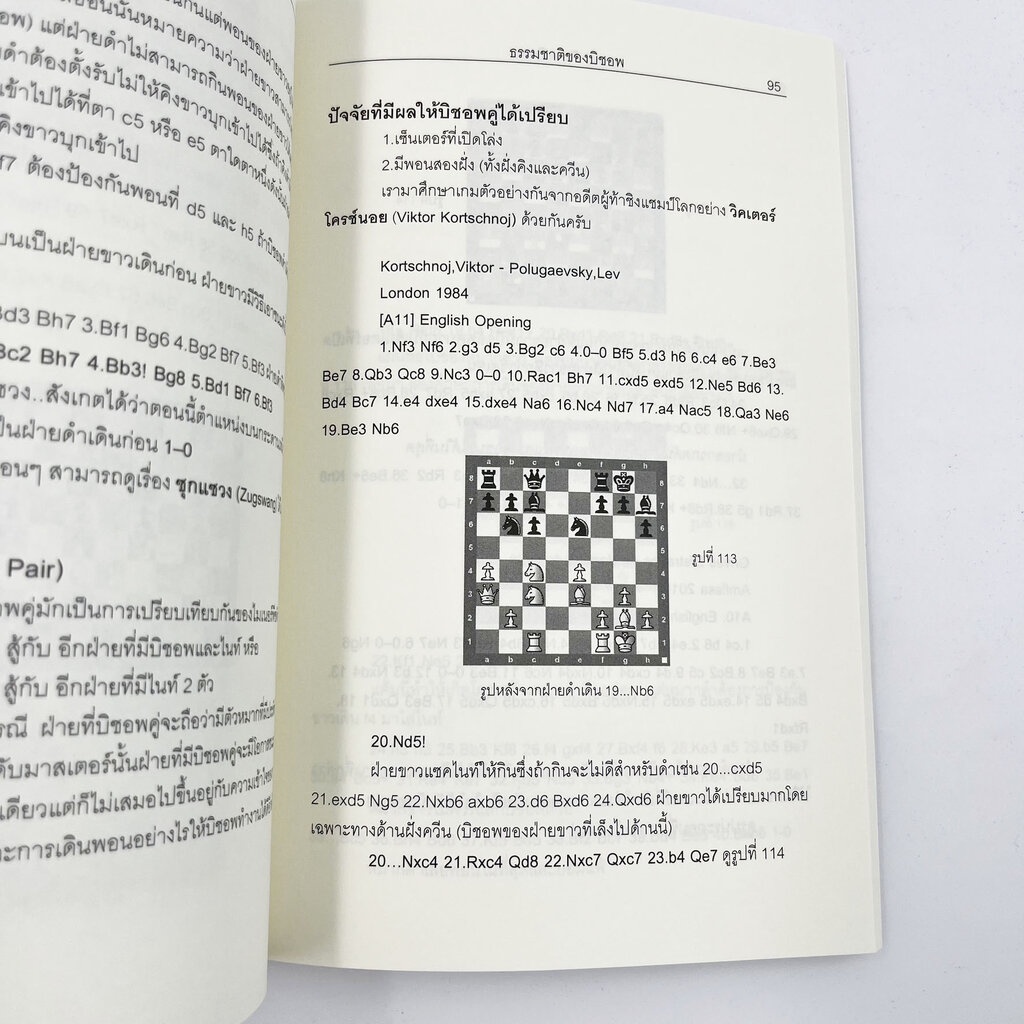 เข้าไปได้ที่ตา c5 หรือ e5 ตาใดตาหนึ่ง
คิงขาวบุกเข้าไป
f7 ต้องป้องกันพอนที่ d5 และ h5
บนเป็นฝ่ายขาวเดินก่อน
Bd3 Bh7 3.Bf1 Bg6 4.Bg2 Bf7 5.Bf3
Bc2 Bh7 4.Bb3! Bg8 5.Bd1 Bf7 6.Bf3
ซวง..สังเกตได้ว่าตอนนี้ตำแหน่งบนกระดาน
ป็นฝ่ายดำเดินก่อน 1–0
อนๆ สามารถดูเรื่อง ซุกแซวง (Zugswang)
Pair)
อพคู่มักเป็นการเปรียบเทียบกันของไมเนอร์พีซ
สู้กับ อีกฝ่ายที่มีบิชอพและไนท์ หรือ
สู้กับ อีกฝ่ายที่มีไนท์ 2 ตัว
รณี ฝ่ายที่บิชอพคู่จะถือว่ามีตัวหมากที่
ดับมาสเตอร์นั้นฝ่ายที่มีบิชอพคู่จะมีโอกาส
เดียวแต่ก็ไม่เสมอไปขึ้นอยู่กับความเข้าใจ
ะการเดินพอนอย่างไรให้บิชอพทำงานได้
ธรรมชาติของบิชอพ
95
ปัจจัยที่มีผลให้บิชอพคู่ได้เปรียบ
1.เซ็นเตอร์ที่เปิดโล่ง
2.มีพอนสองฝั่ง (ทั้งฝั่งคิงและควีน)
เรามาศึกษาเกมตัวอย่างกันจากอดีตผู้ท้าชิงแชมป์โลกอย่าง วิคเตอร์
โครช์นอย (Viktor Kortschnoj) ด้วยกันครับ
Kortschnoj,Viktor - Polugaevsky,Lev
London 1984
[A11] English Opening
1.Nf3 Nf6 2.g3 d5 3.Bg2 c6 4.0–0 Bf5 5.d3 h6 6.c4 e6 7.Be3
Be7 8.Qb3 Qc8 9.Nc3 0–0 10.Rac1 Bh7 11.cxd5 exd5 12.Ne5 Bd6 13.
Bd4 Bc7 14.e4 dxe4 15.dxe4 Na6 16.Nc4 Nd7 17.a4 Nac5 18.Qa3 Ne6
19.Be3 Nb6
a b c d e f g h
8 8
7 7
6 6
5 5
4 4
3 3
2 2
1 1
a b c d e f g h
รูปที่ 113
รูปหลังจากฝ่ายดำเดิน 19...Nb6
20.Nd5!
ฝ่ายขาวแซคไนท์ให้กินซึ่งถ้ากินจะไม่ดีสำหรับดำเช่น 20...cxd5
21.exd5 Ng5 22.Nxb6 axb6 23.d6 Bxd6 24.Qxd6 ฝ่ายขาวได้เปรียบมากโดย
เฉพาะทางด้านฝั่งควีน (บิชอพของฝ่ายขาวที่เล็งไปด้านนี้)
20...Nxc4 21.Rxc4 Qd8 22.Nxc7 Qxc7 23.b4 Qe7 ดูรูปที่ 114